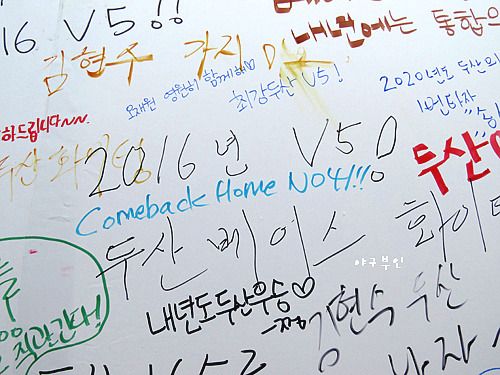 16 V5!!
내년에는 통합우
김현수 가지
오재원 영원히 함께해♡
최강두산 V5!
2020년도 두산의
1번타자
하드립니다~~.
두산
2016년 V5!
두산♡
Comeback Home NO41!!
두산 베이스 화이
야구부인
직관간다!
내년도두산우승♡
김현수 우산